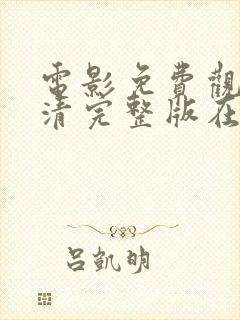 電影免費觀
清完整版在
呂凱明